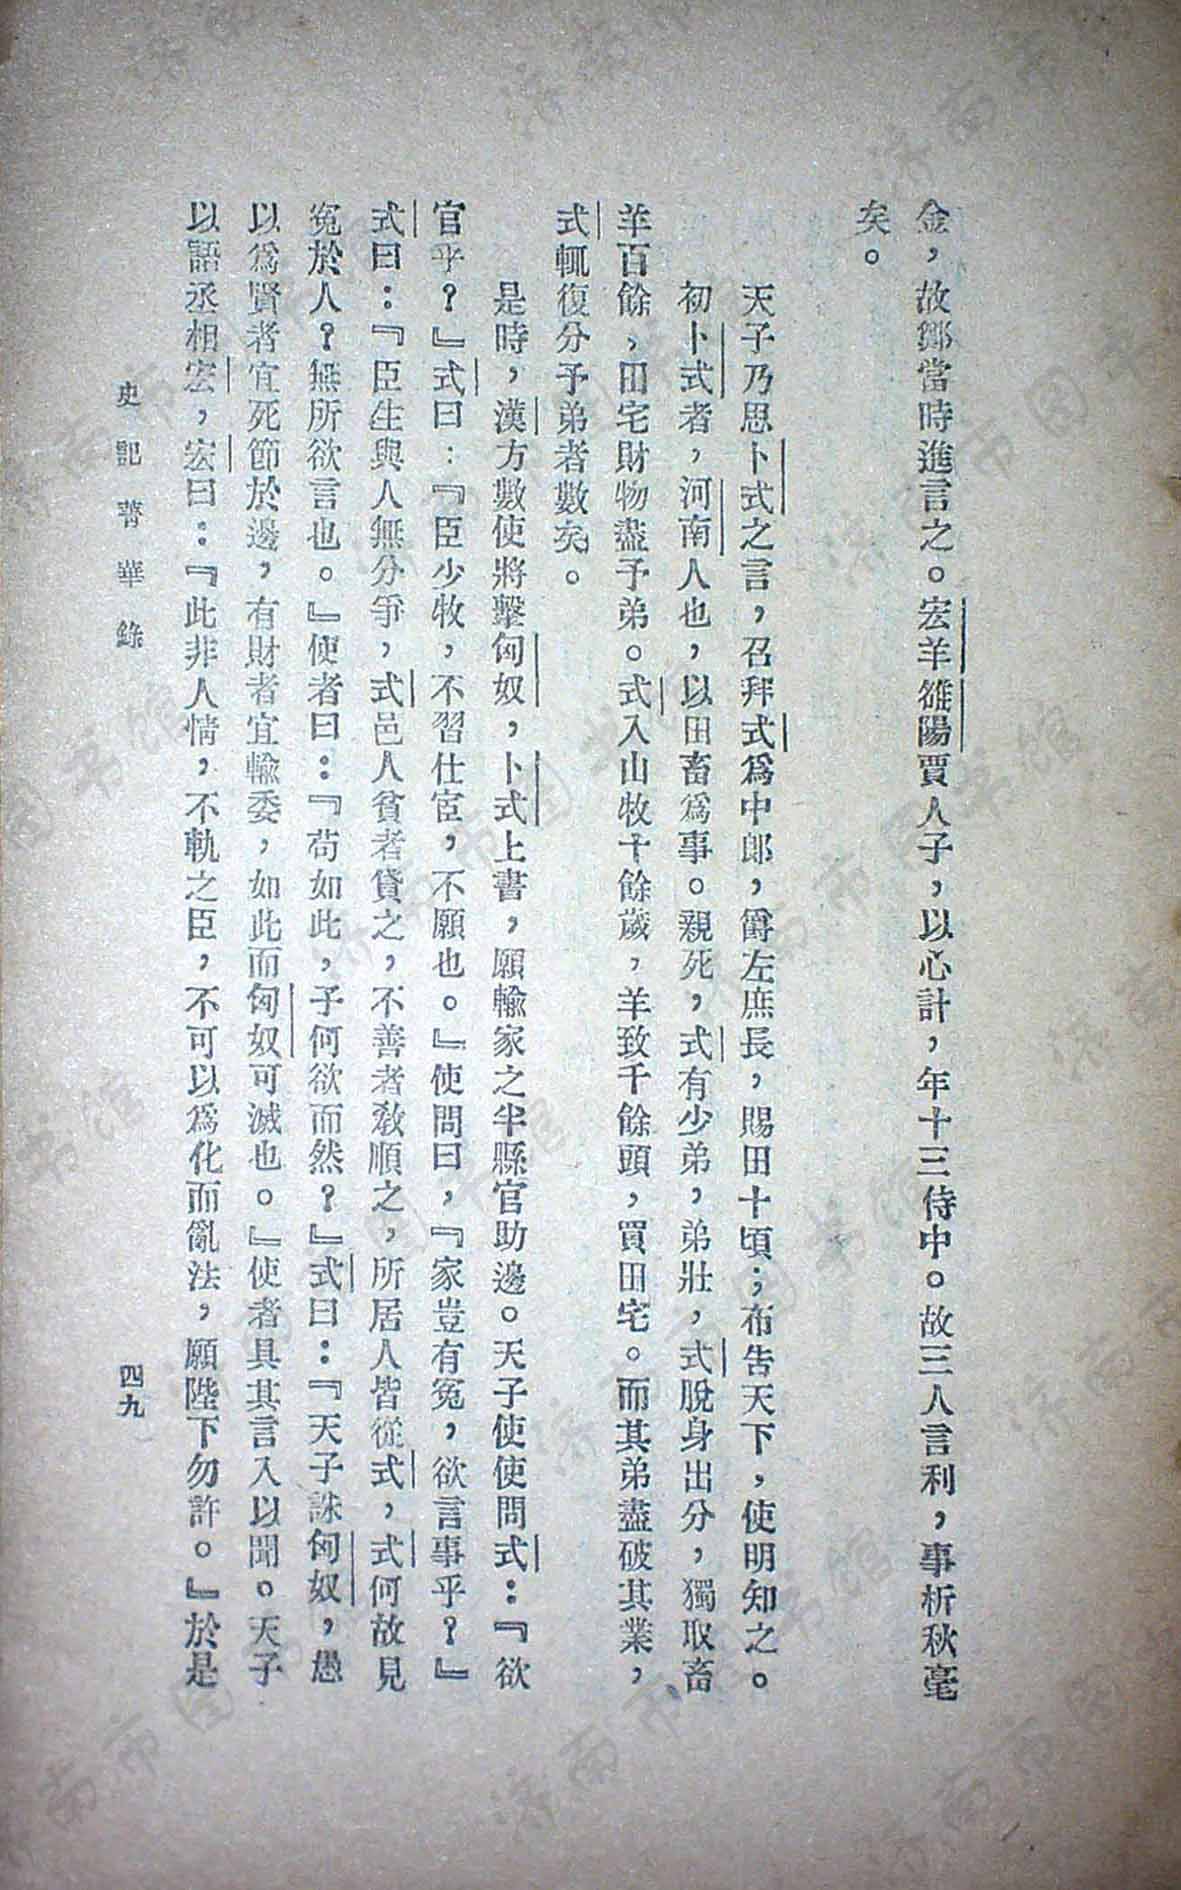 金，故鄭當時進言之。宏羊雒陽賈人子，以心計，年十三侍中。故三人言利，事析秋毫
矣。
天子乃思卜式之言，召拜式爲中郎，爵左庶長，賜田十頃；布告天下，使明知之。
初卜式者，河南人也，以田畜爲事。親死，式有少弟，弟壯，式脫身出分，獨取畜
羊百餘，田宅財物盡予弟。式入山牧十餘歲，羊致千餘頭，買田宅。而其弟盡破其業，
式輒復分予弟者數矣。
是時，漢方數使將擊匈奴，卜式上書，願輸家之半縣官助邊。天子使使問式：『欲
官乎？』式曰：『臣少牧，不習仕宦，不願也。』使問曰，『家豈有冤，欲言事乎？』
式曰：『臣生與人無分爭，式邑人貧者貸之，不善者敎順之，所居人皆從式，式何故見
冤於人？無所欲言也。』使者曰：『苟如此，子何欲而然？』式曰：『天子誅匈奴，愚
以爲賢者宜死節於邊，有財者宜輸委，如此而匈奴可滅也。』使者具其言入以聞。天子
以語丞相宏，宏曰：『此非人情，不軌之臣，不可以爲化而亂法，願陛下勿許。』於是
史記菁華錄
四九
濟南市图书馆